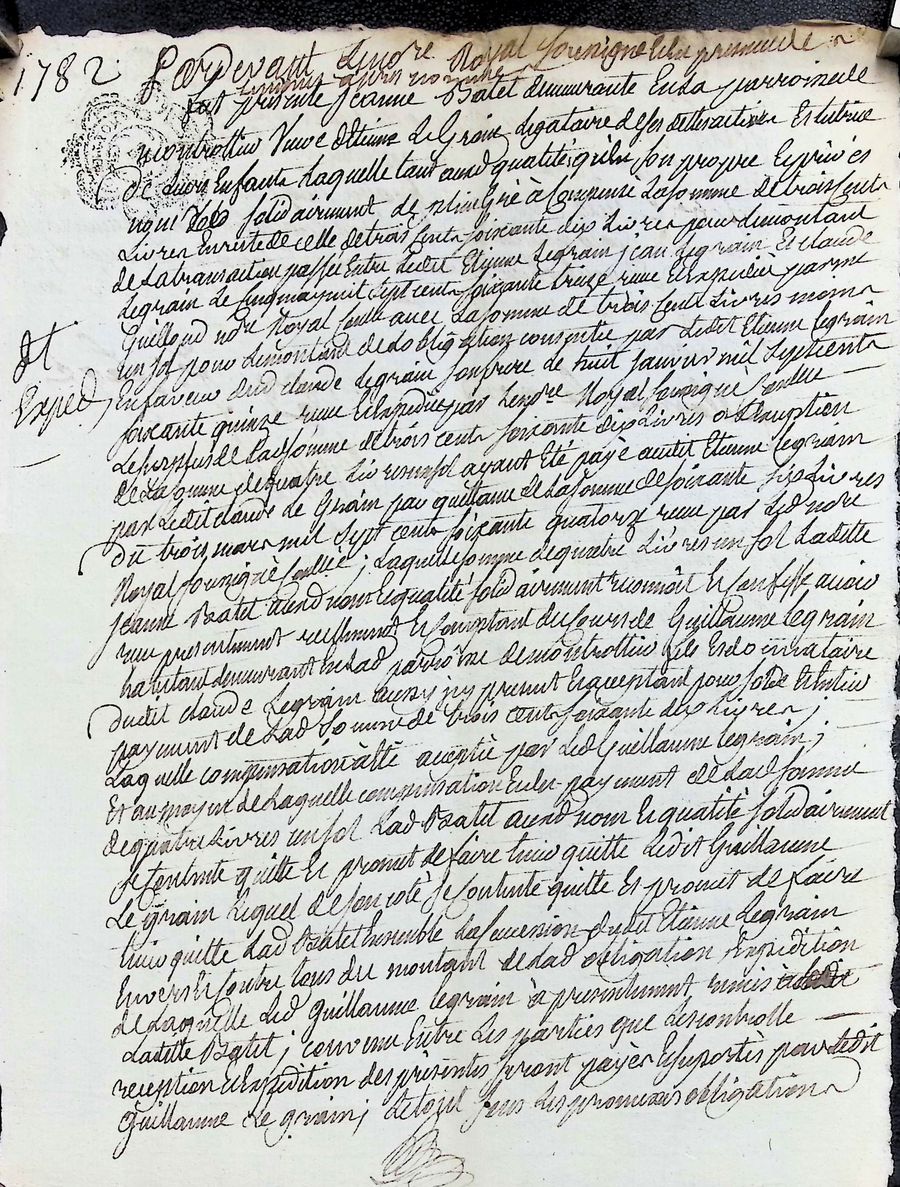 1782
Pardevant Le no.re Royal soussigné et en presence de
temoins apres nommés
fut presente Jeanne Batet demeurante en la parroisse de
montrottier Veuve d'Etienne Le Grain legataire de ses et tutrice
de Leurs Enfants Laquelle tant aud qualités qu'en son propre et privé
nom solidairement de plein gré à Compensé La somme de trois Cents
Livres En reste de celle de trois Cents soixante dix Livres pour Le montant
de La transaction passée Entre Ledit Etienne Legrain, jean Legrain Et claude
Legrain Le sept cents soixante treize reçue Et expediée par me
Guilloud no.re Royal avec La somme de trois Cents Livres moins
un sol pour Le montant de L'obligation consentie par Ledit Etienne Legrain
dt
Exped
En faveur dud claude Legrain son frere Le huit janvier mil sept cents
soixante quinze reçue Et expediée par Le no.re Royal soussigné
Le surplus de Lad somme de trois cents soixante dix Livres a L'exception
de La somme de quatre Livres un sol ayant Eté payé audit Etienne Legrain
par Ledit claude Le Grain par quittance de La somme de soixante six Livres
du trois mars mil Sept cents soixante quatorze reçue par Led no.re
Royal soussigné; Laquelle somme de quatre Livres un sol Ladite
jeanne Batet aud nom Et qualité solidairement reconnoit Et Confesse avoir
reçu presentement reellement Et Comptant du sieur de Guillaume Legrain
habitant demeurant En Lad parroisse de montrottier fils Et donnataire
dudit claude Legrain aussy icy present Et acceptant pour solde Et Entier
payement de Lad somme de trois cents soixante dix Livres;
Laquelle compensation à eté acceptée par Led Guillaume Legrain;
Et au moyen de Laquelle compensation Et du payement de Lad somme
de quatre Livres un sol Lad Batet aud nom Et qualité solidairement
se Contente quitte Et promet de faire tenir quitte Ledit Guillaume
Le grain Lequel de son coté se Contente quitte Et promet de faire
tenir quitte Lad Batet Ensemble La succession dudit Etienne Legrain
Envers Et Contre tous du montant de Lad obligation Expedition
de Laquelle Led Guillaume Legrain à presentement remis à
Ladite Batet; convenu Entre Les parties que Le controlle
reception Et Expedition des presentes seront payés Et suportés par Ledit
Guillaume Le grain; Le tout sous Les promesses obligations